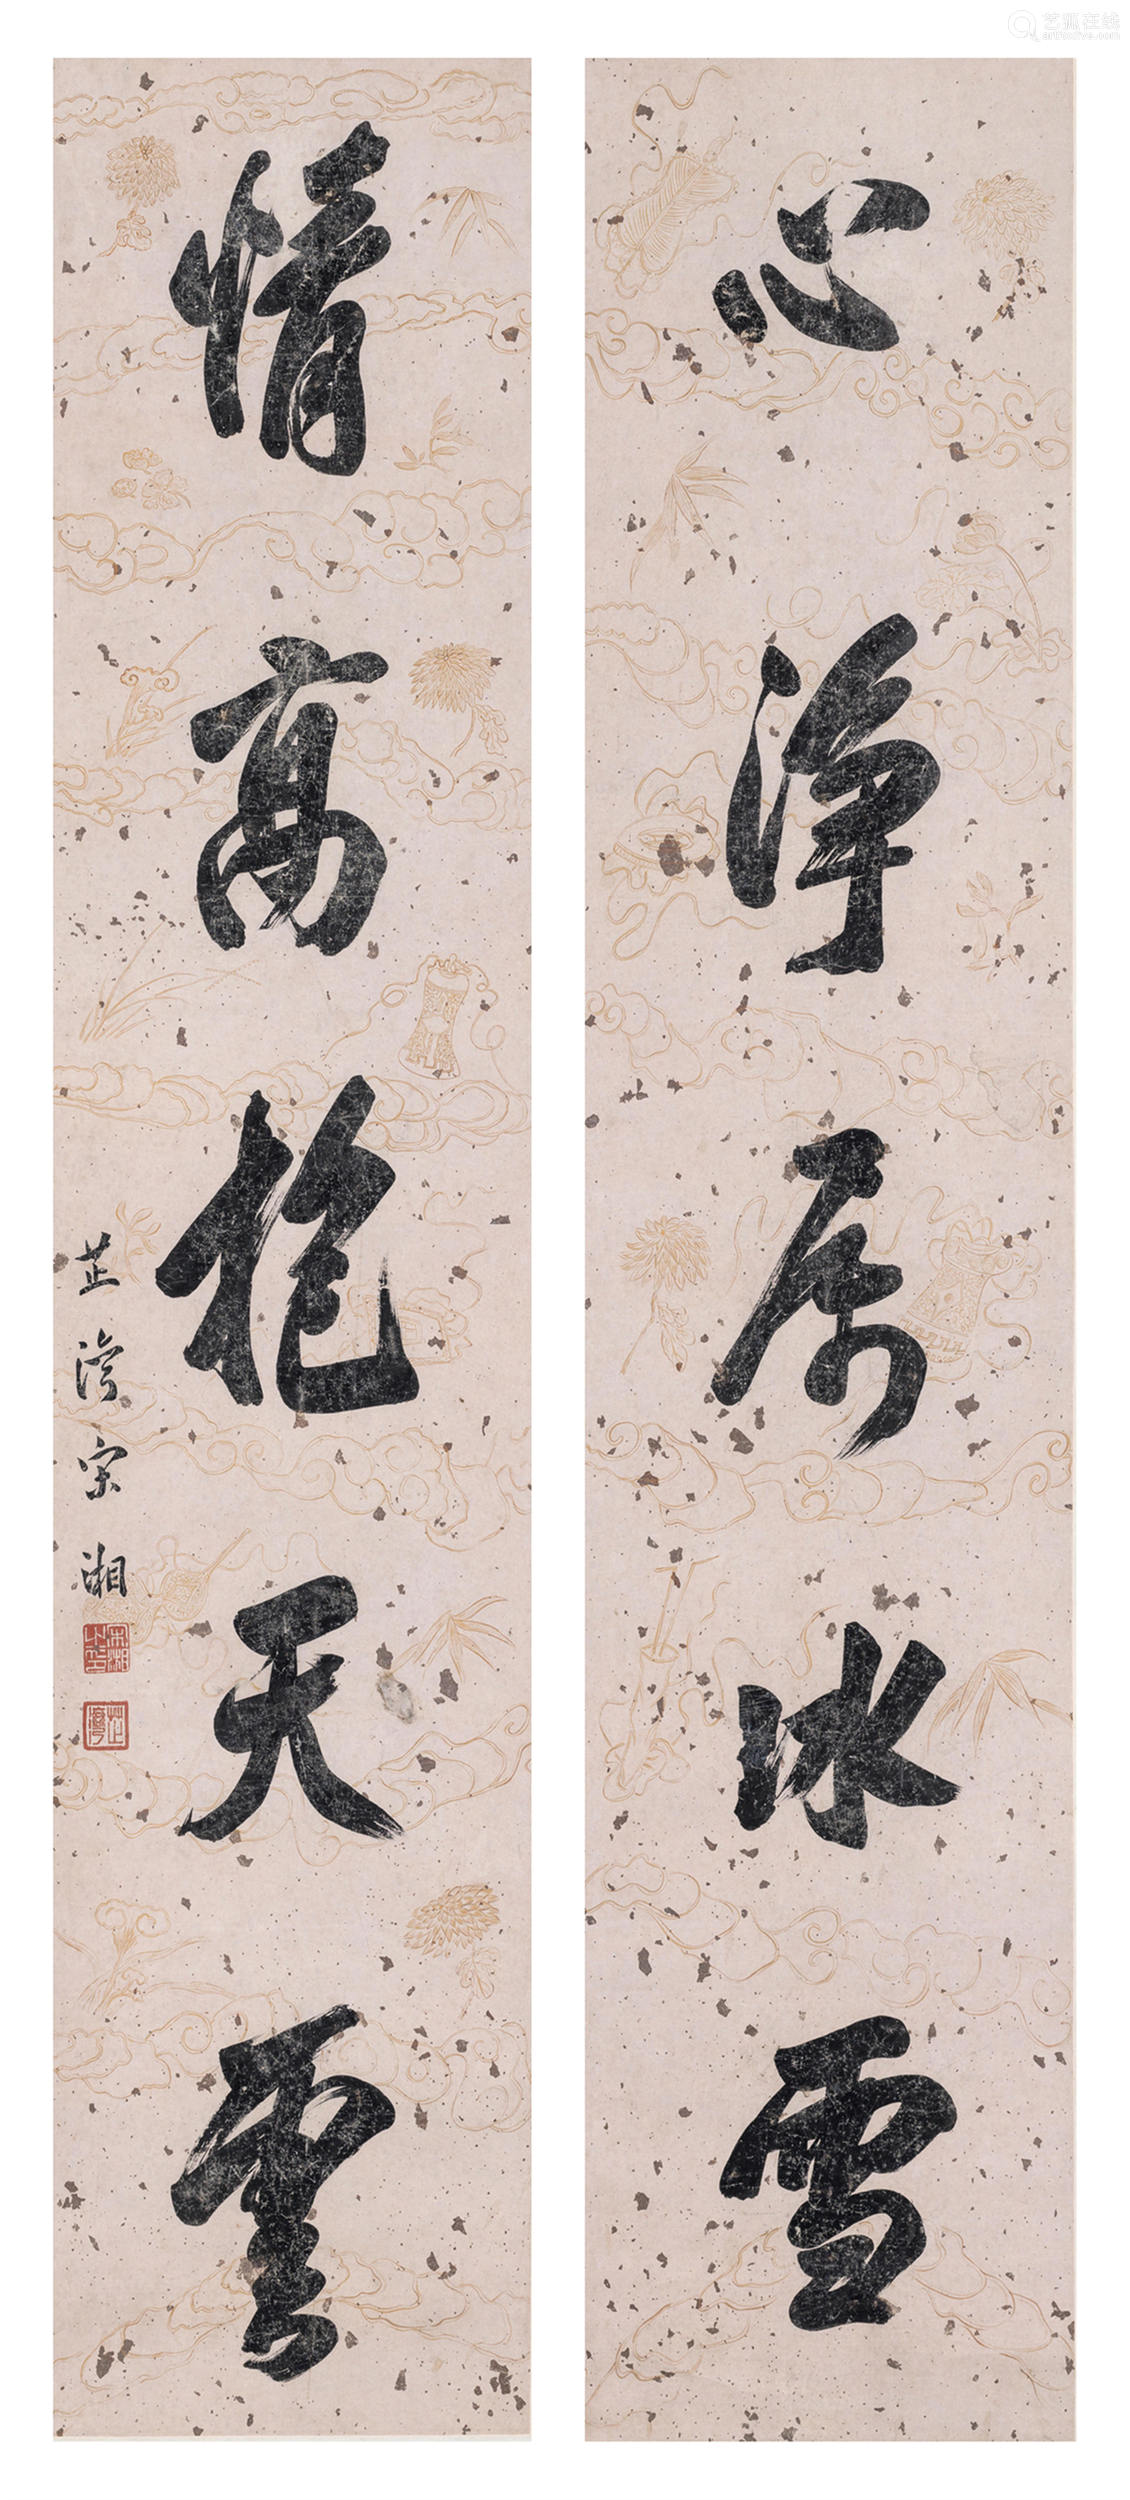 心淨属冰雪
情高抱天雲
芷灣宋湘
宋湘之印
芷灣
艺狐在线
artfoxlive.com